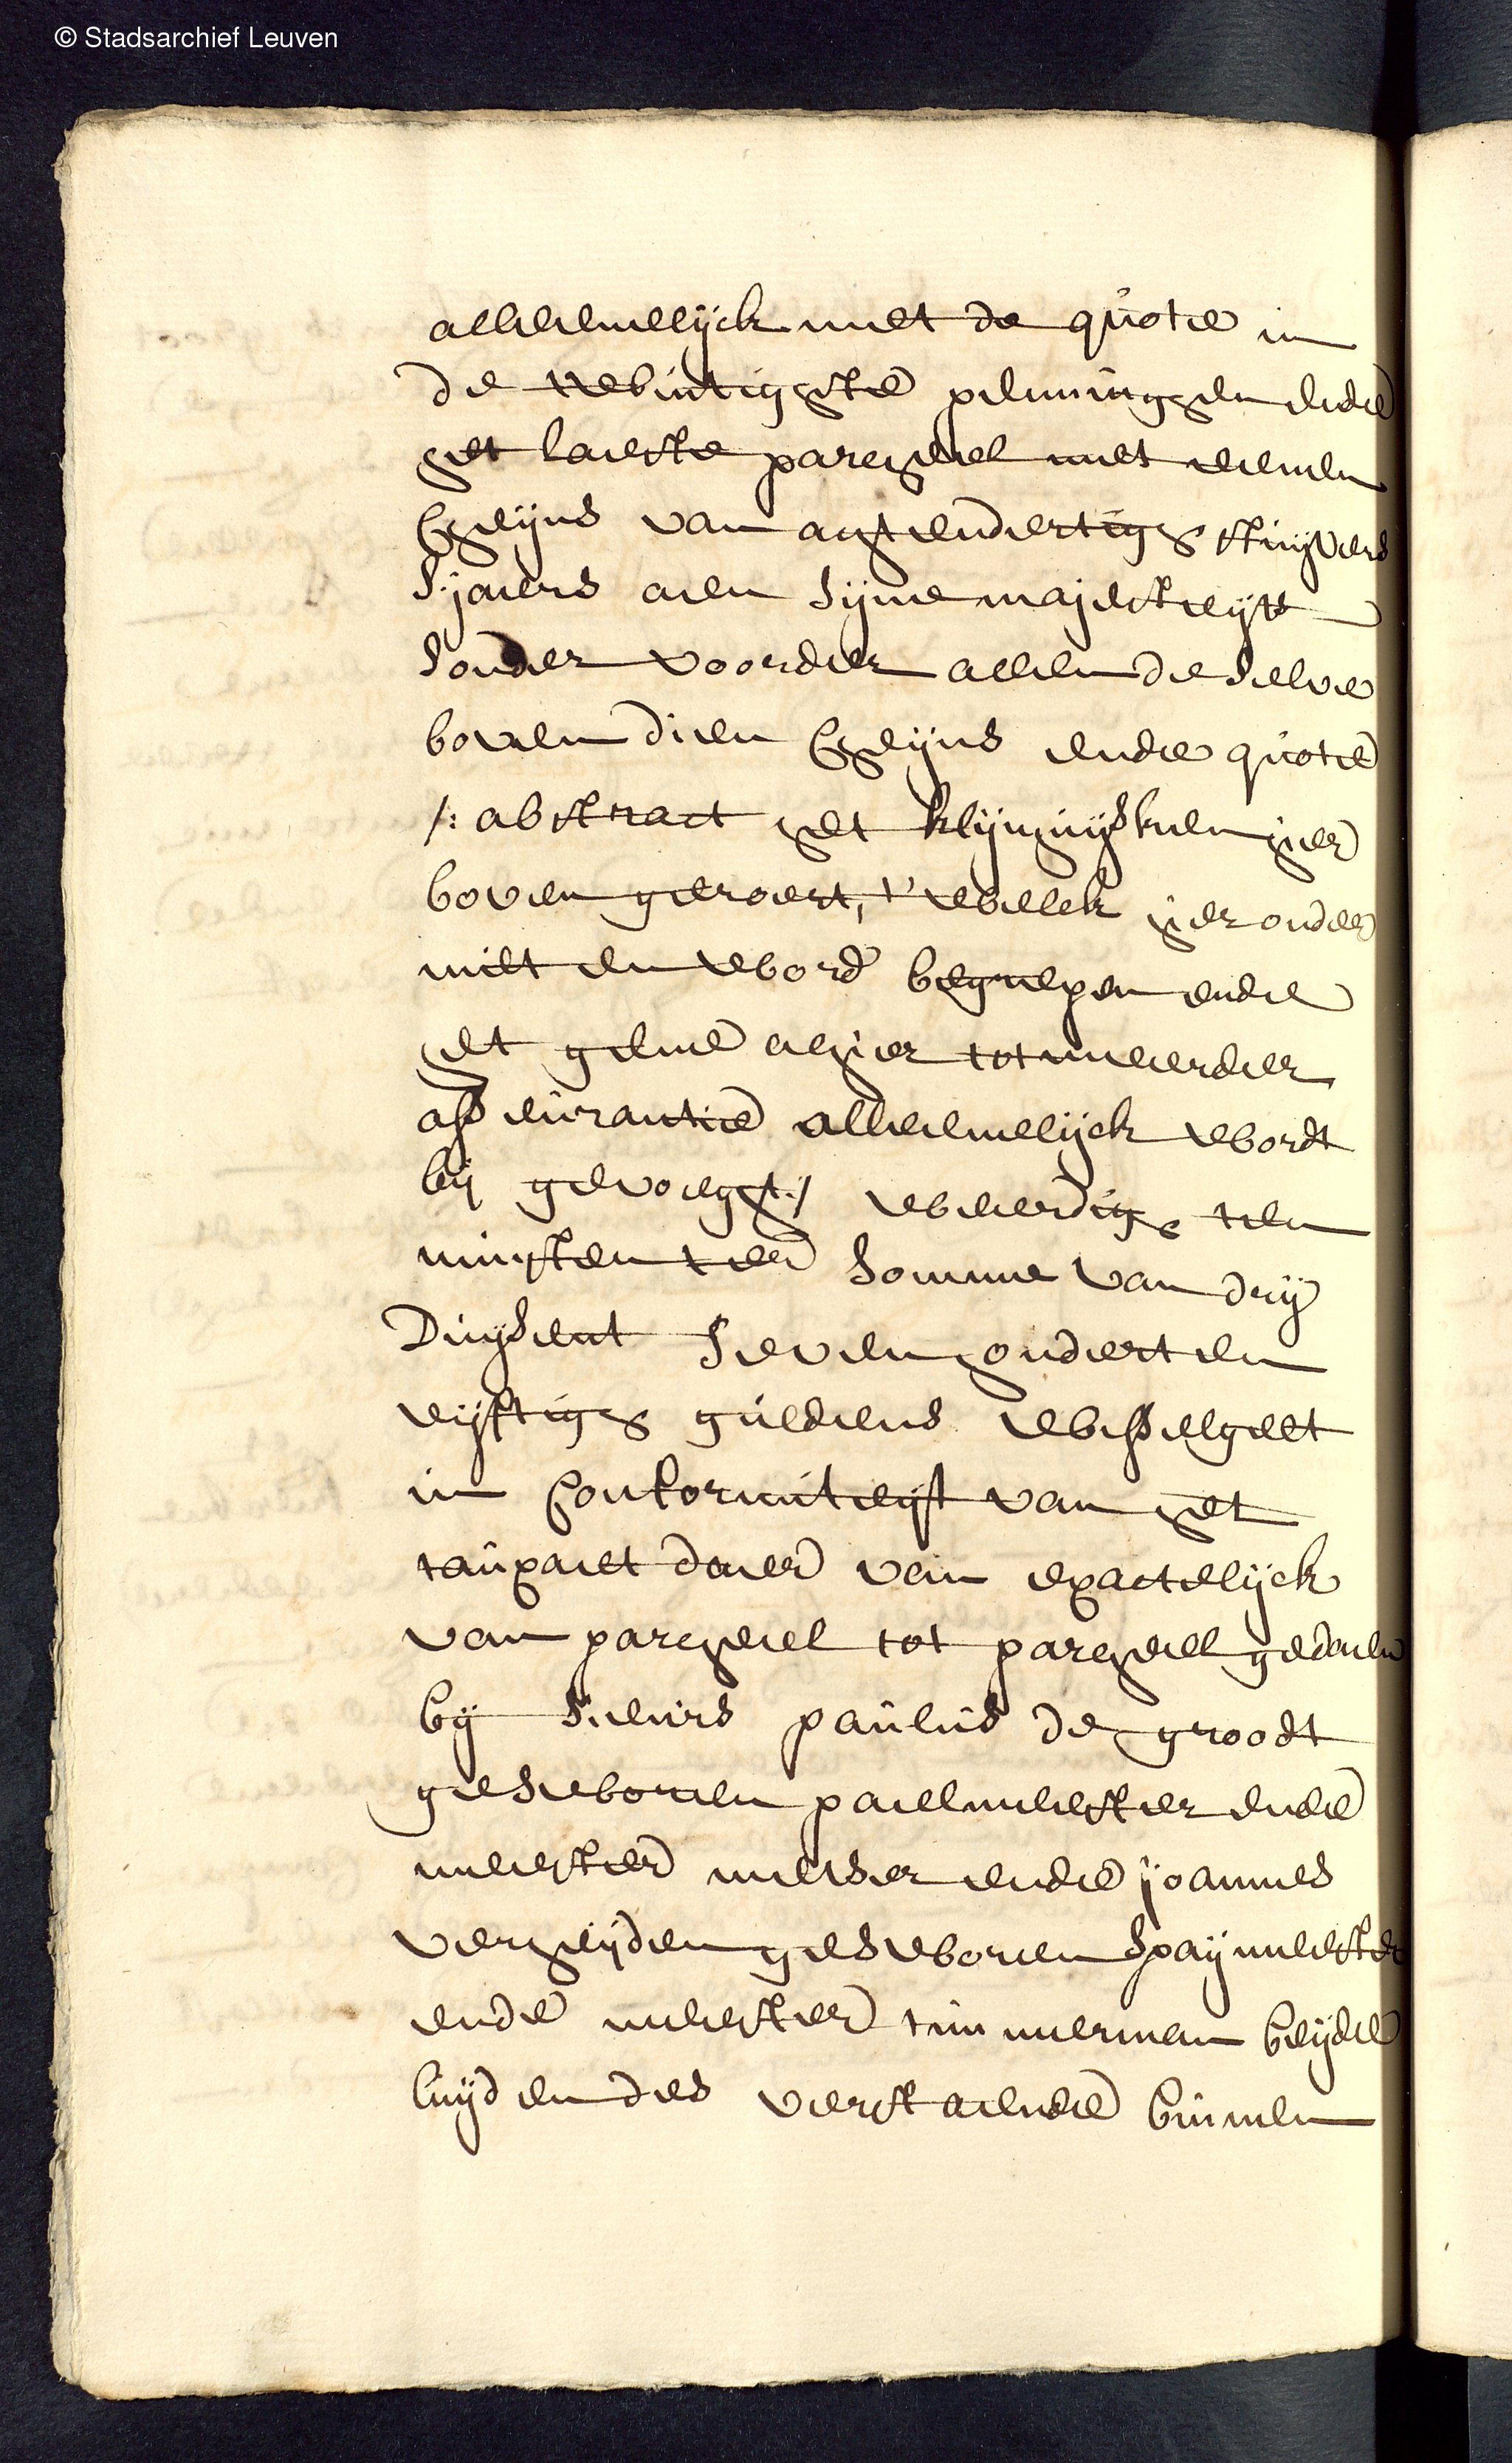 © Stadsarchief Leuven
alleenelijck met de quote in
de twintighste penninghen ende
het laeste parcheel met eenen
chijns van achtendertigh stuijvers
s'jaers aen sijne majesteijt
sonder voorder allen de selve
boven dien chijns ende quote
/: abstract het kleijn huijsken hier
boven geroert, t'welck hier onder
niet en word begrepen ende
het gene alhier tot meerder
asseurantie alleenelijck wordt
bij gevoeght :/ weerdigh ten
minsten ter somme van drij
duijsent seven hondert en
vijftigh guldens wisselgelt
in conformiteijt van het
tauxaet daer van exactelijck
van parcheel tot parcheel gedaen
bij sieurs paulus de groodt
geswooren paelmeester ende
meester metser ende joannes
verheijden geswooren spaijmeester
ende meester timmerman beijde
luijden des verstaende binnen